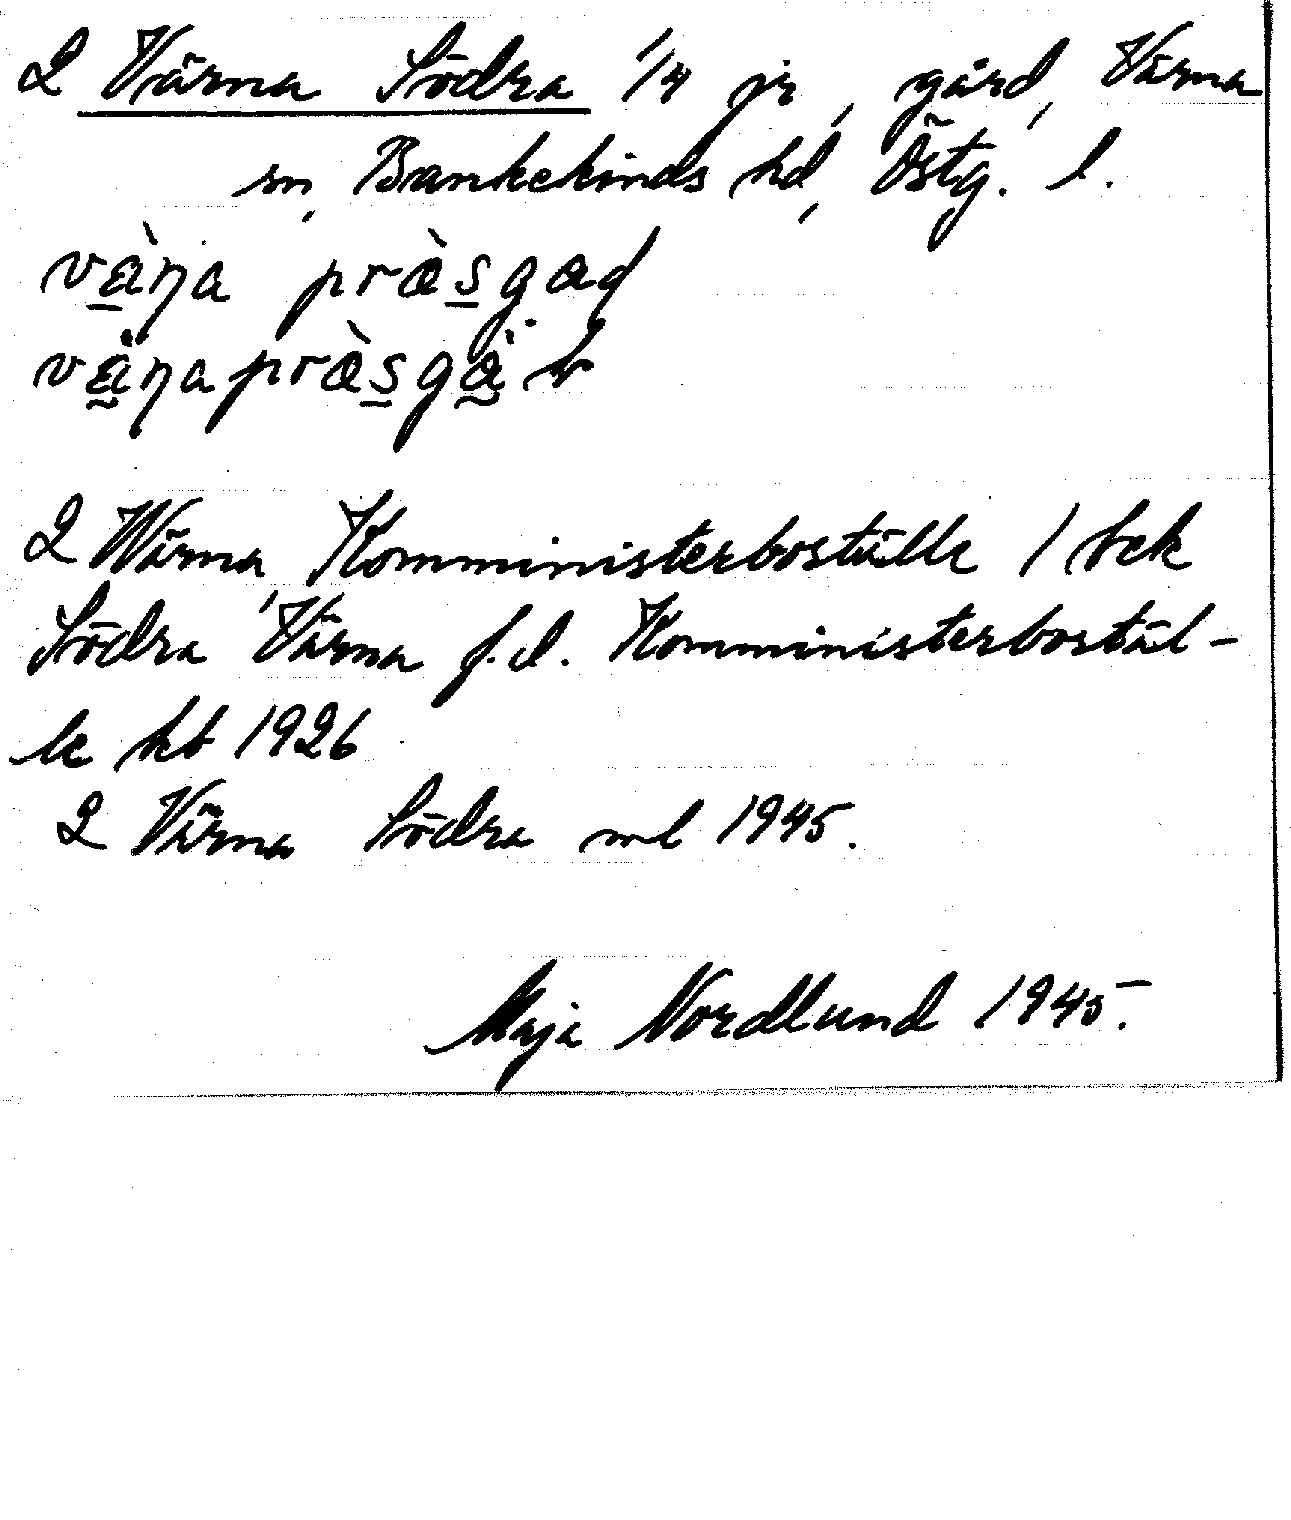 2 Värna Södra 1/4 jr, gård, Värna
sn, Bankekinds hd, Östg. l.
2 Wärna, Komministerboställe / bek
Södra Värna f.d. Komministerbostäl-
le kb 1926
2 Värna Södra ml 1945.
Maja Nordlund 1945.